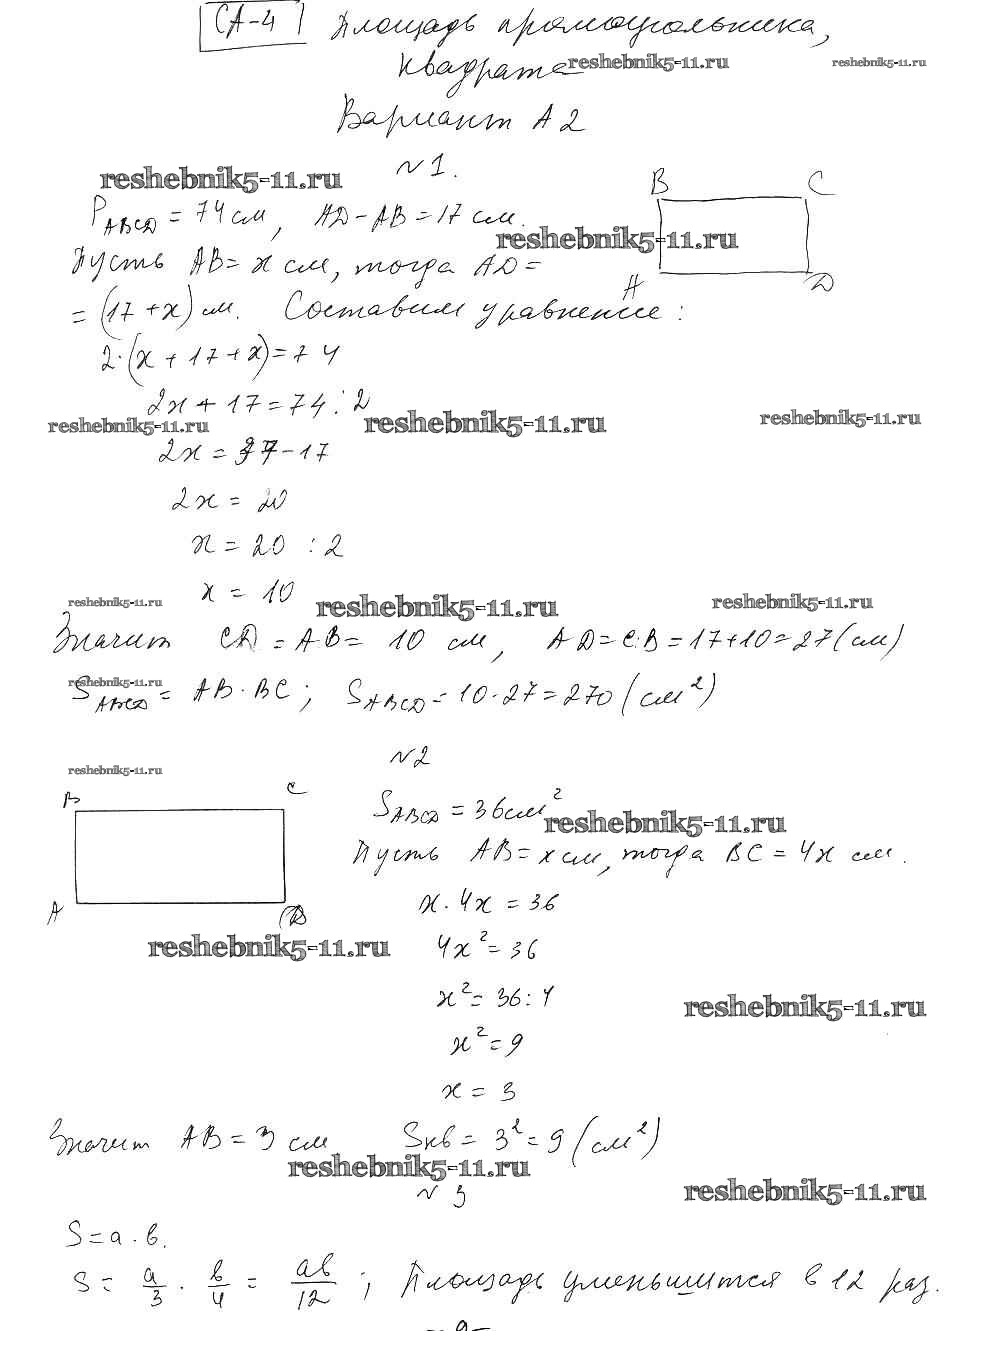 СА-4 Площадь прямоугольника,
квадрата reshebnik5-11.ru reshebnik5-11.ru
Вариант А2
№1.
reshebnik5-11.ru
B C
P_ABCD = 74 см, AD - AB = 17 см.
reshebnik5-11.ru
Пусть AB = x см, тогда AD =
A D
= (17 + x) см. Составим уравнение:
2·(x + 17 + x) = 74
2x + 17 = 74 : 2
reshebnik5-11.ru reshebnik5-11.ru reshebnik5-11.ru
2x = 37 - 17
2x = 20
x = 20 : 2
x = 10
reshebnik5-11.ru reshebnik5-11.ru reshebnik5-11.ru
Значит CD = AB = 10 см, AD = CB = 17 + 10 = 27 (см)
reshebnik5-11.ru
S_ABCD = AB · BC; S_ABCD = 10 · 27 = 270 (см²)
№2
reshebnik5-11.ru
B C
S_ABCD = 36 см²
reshebnik5-11.ru
Пусть AB = x см, тогда BC = 4x см.
x · 4x = 36
A D
reshebnik5-11.ru
4x² = 36
x² = 36 : 4
reshebnik5-11.ru
x² = 9
x = 3
Значит AB = 3 см Sкв = 3² = 9 (см²)
reshebnik5-11.ru
№3
reshebnik5-11.ru
S = a · b.
S = a/3 · b/4 = ab/12; Площадь уменьшится в 12 раз.